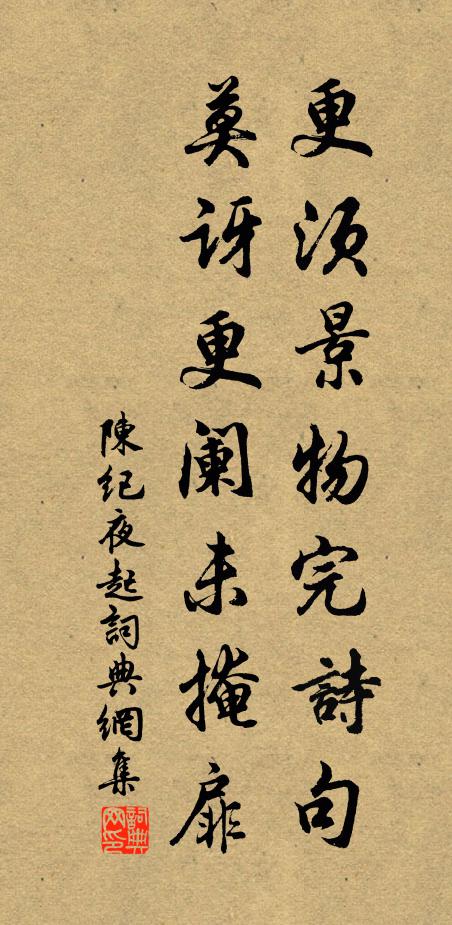 更須景物完詩句
莫訝更闌未掩扉
陳紀夜起詞典網集
詞典网印